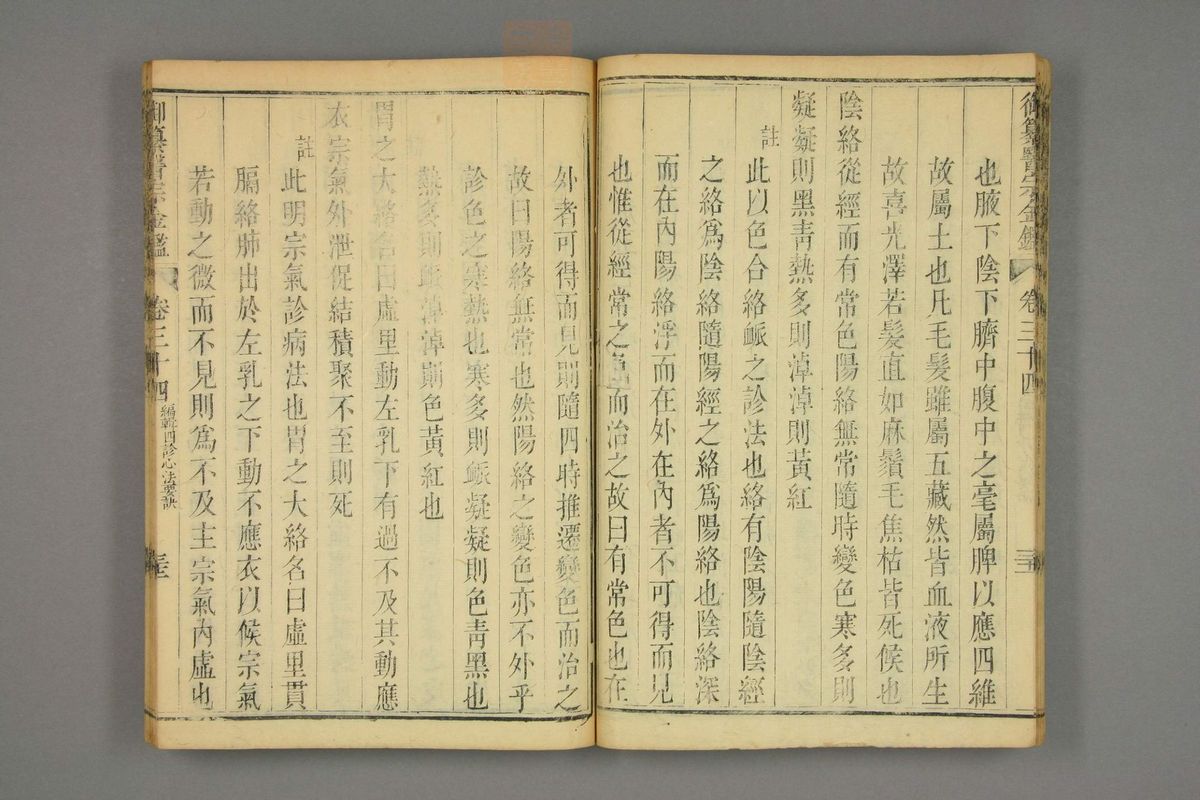 御纂醫宗金鑑 卷三十四
也腋下陰下臍中腹中之毫屬脾以應四維
故屬土也凡毛髮雖屬五藏然皆血液所生
故喜光澤若髮直如麻鬚毛焦枯皆死候也
陰絡從經而有常色陽絡無常隨時變色寒多則
凝凝則黑青熱多則淖淖則黃紅
註此以色合絡䘑之診法也絡有陰陽隨陰經
之絡為陰絡隨陽經之絡為陽絡也陰絡深
而在內陽絡浮而在外在內者不可得而見
也惟從經常之色而治之故曰有常色也在
外者可得而見則隨四時推遷變色而治之
故曰陽絡無常也然陽絡之變色亦不外乎
診色之寒熱也寒多則䘑凝凝則色青黑也
熱多則䘑淖淖則色黃紅也
胃之大絡名曰虛里動左乳下有過不及其動應
衣宗氣外泄促結積聚不至則死
註此明宗氣診病法也胃之大絡名曰虛里貫
膈絡肺出於左乳之下動不應衣以候宗氣
若動之微而不見則為不及主宗氣內虛也
御纂醫宗金鑑 卷三十四 編輯四診心法要訣